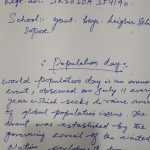 School: Govt. Boys. Higher
: Population day:-
World population day is an annual
event, observed on July 11 every
year which seeks to raise
of global population issues. The
event was established by the
governing council of the united